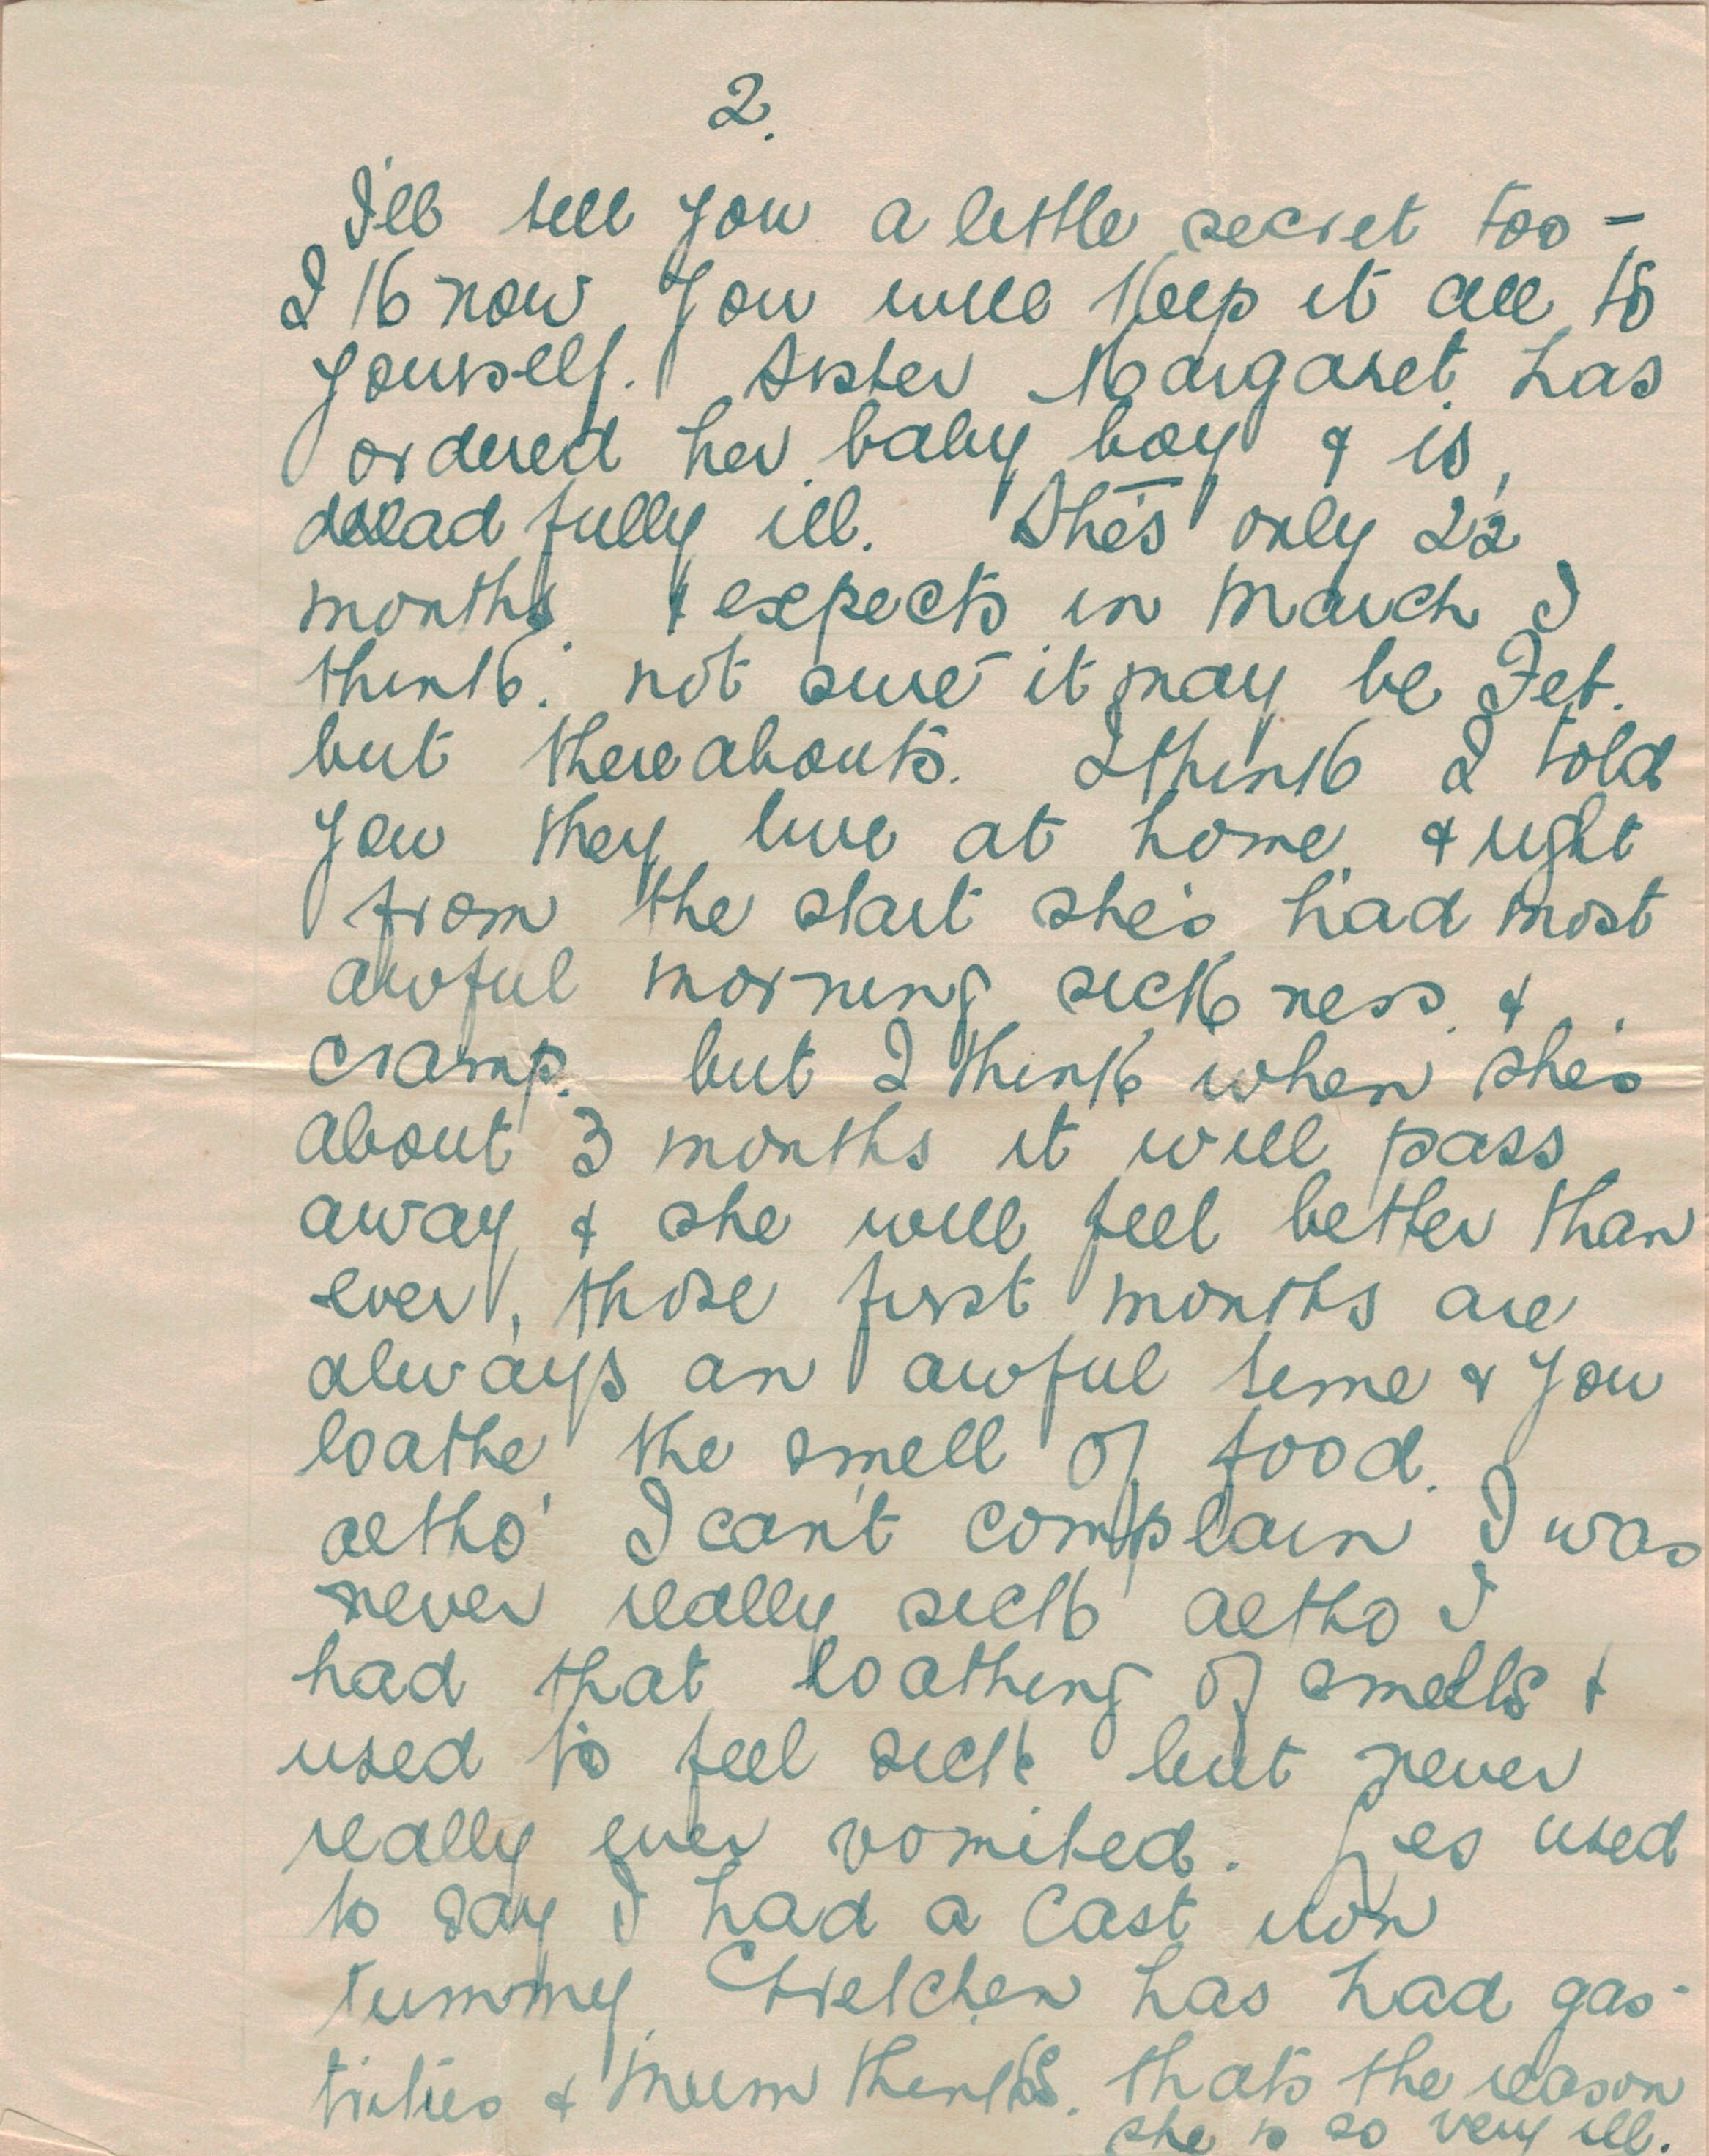 2.
I'll tell you a little secret too –
I know you will keep it all to
yourself. Sister Margaret has
ordered her baby boy & is
dreadfully ill. She's only 2½
months & expects in March I
think. not sure – it may be Feb.
but thereabouts. I think I told
you they live at home & right
from the start she's had most
awful morning sickness &
cramp. but I think when she's
about 3 months it will pass
away & she will feel better than
ever, those first months are
always an awful time & you
loathe the smell of food.
altho' I can't complain I was
never really sick altho I
had that loathing of smells &
used to feel sick but never
really ever vomited. Les used
to say I had a cast iron
tummy. Gretchen has had gas-
trities & Mum thinks. thats the reason
she is so very ill.